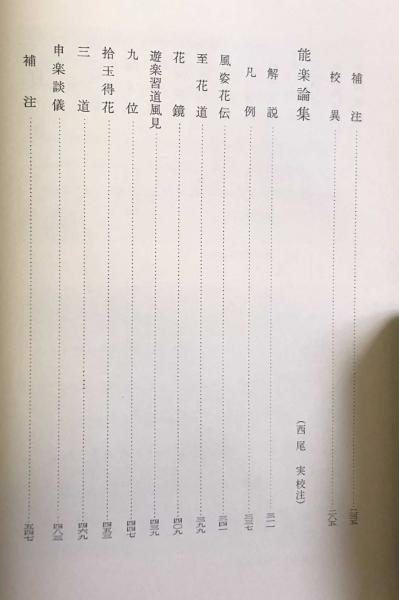 補注……二三五
校異……二八五
能楽論集 (西尾 実校注)
解説……三一一
凡例……三三七
風姿花伝……三四一
至花道……三九九
花鏡……四〇九
遊楽習道風見……四三九
九位……四四七
拾玉得花……四五三
三道……四六九
申楽談儀……四八三
補注……五四七